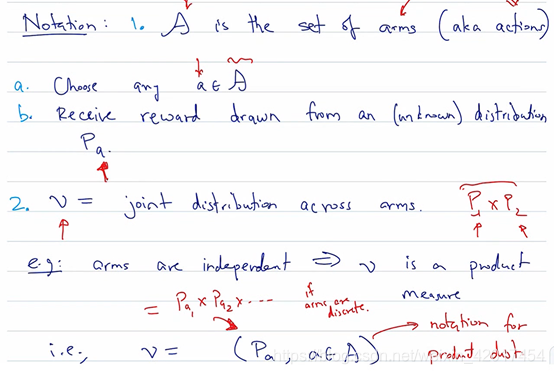 Notation: 1. A is the set of arms (aka actions)
a. Choose any a ∈ A
b. Receive reward drawn from an (unknown) distribution
Pa.
2. ν = joint distribution across arms. P1 x P2
e.g: arms are independent ⟹ ν is a product
measure
= Pa1 x Pa2 x ... if arms are discrete.
i.e., ν = (Pa, a ∈ A) → notation for
product dist